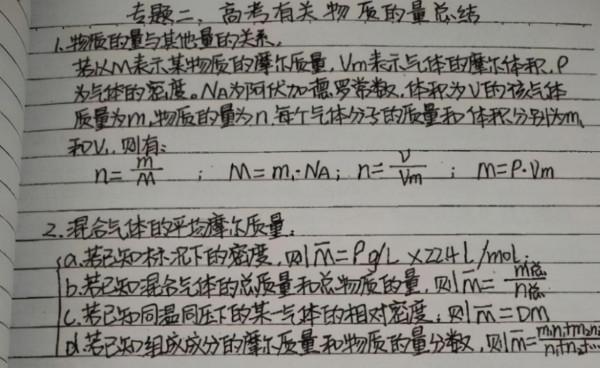 专题二、高考有关物质的量总结
1.物质的量与其他量的关系。
若以M表示某物质的摩尔质量,Vm表示气体的摩尔体积,ρ
为气体的密度。NA为阿伏加德罗常数,体积为V的该气体
质量为m,物质的量为n,每个气体分子的质量和体积分别为m1
和V1,则有:
n=m/M ; M=m1·NA; n=V/Vm ; m=ρ·Vm
2.混合气体的平均摩尔质量.
a.若已知标况下的密度,则m̅=ρg/L×22.4L/mol;
b.若已知混合气体的总质量和总物质的量,则m̅=m总/n总
c.若已知同温同压下的某一气体的相对密度,则m̅=Dm
d.若已知组成成分的摩尔质量和物质的量分数,则m̅=m1n1+m2n2/n1+n2+…